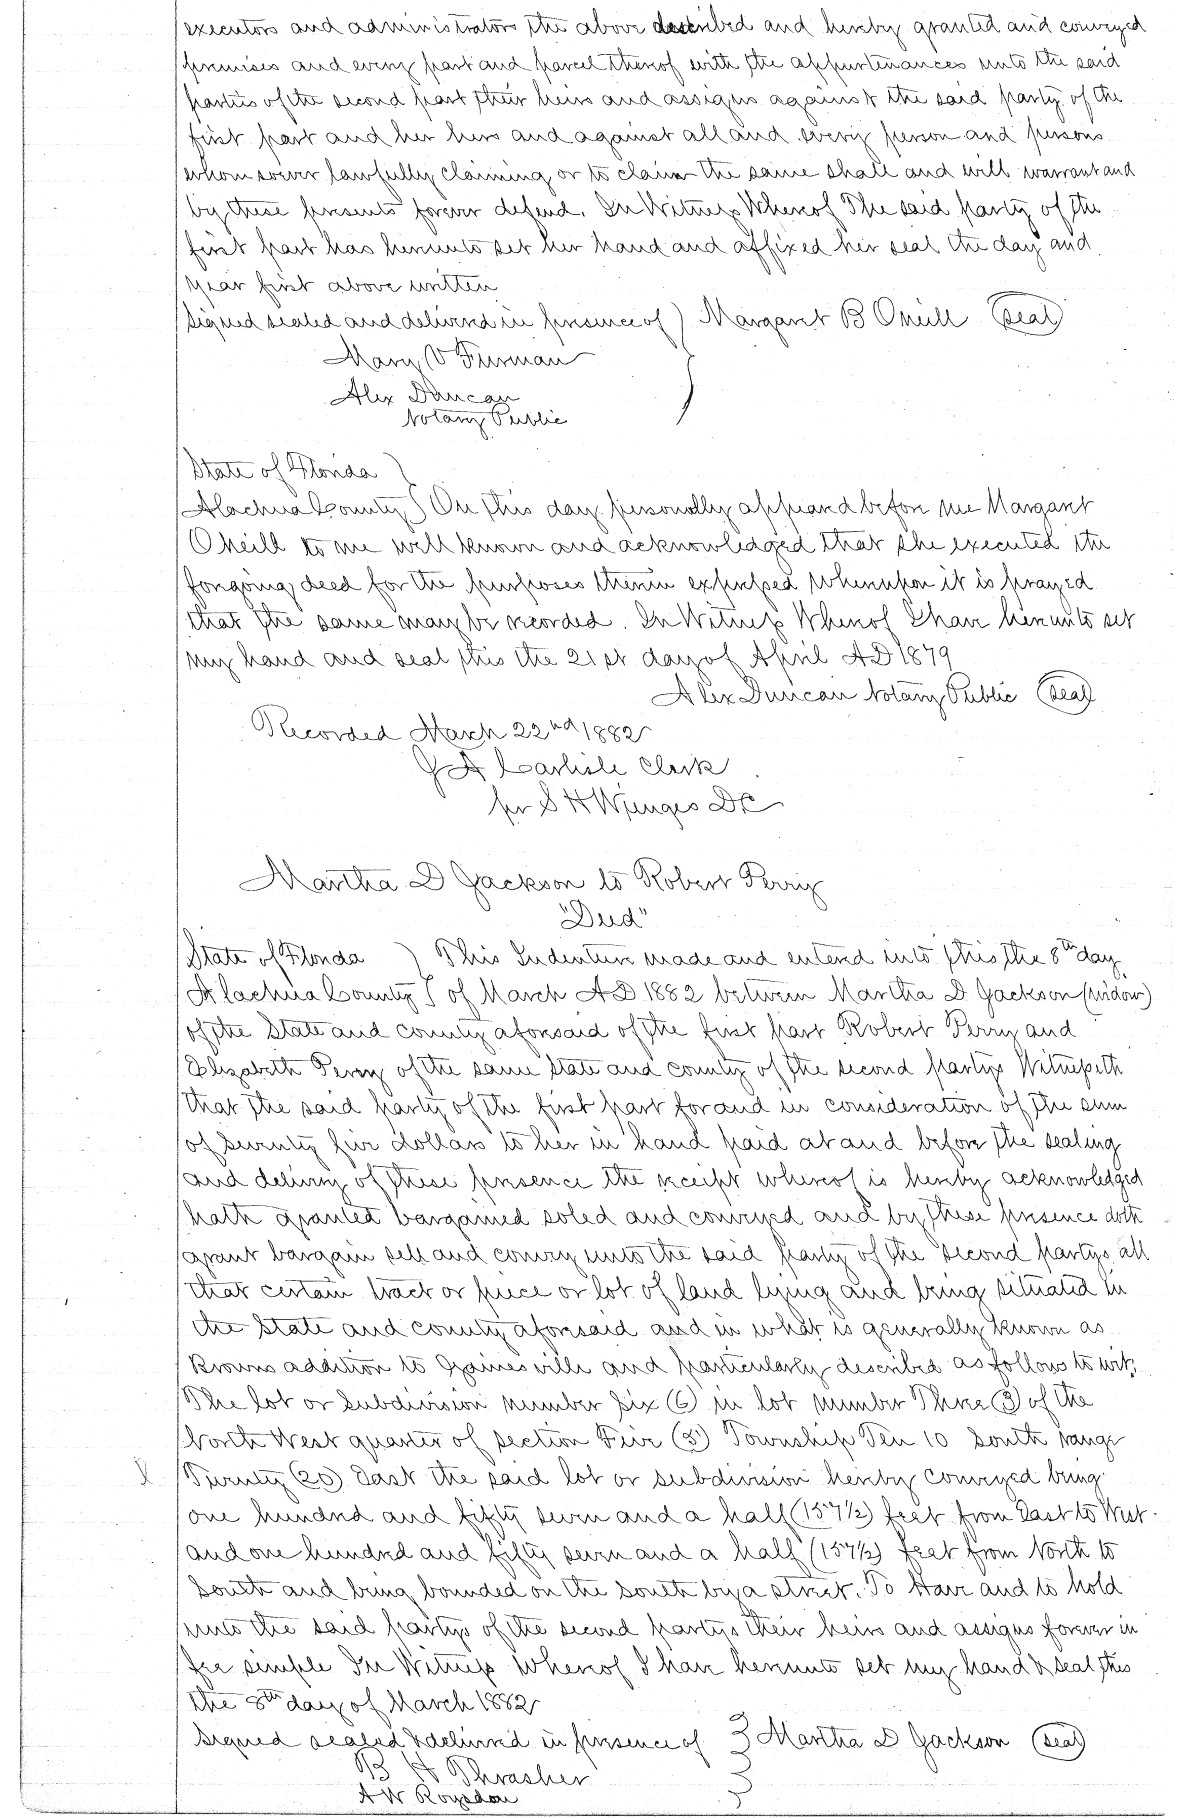 executors and administrators the above described and hereby granted and conveyed
premises and every part and parcel thereof with the appurtenances unto the said
parties of the second part their heirs and assigns against the said party of the
first part and her heirs and against all and every person and persons
whomsoever lawfully claiming or to claim the same shall and will warrant and
by these presents forever defend. In Witness Whereof The said party of the
first part has hereunto set her hand and affixed her seal the day and
year first above written
Signed sealed and delivered in presence of ) Margaret B Oneill (seal)
Mary V Furman
Alex Duncan
Notary Public
State of Florida )
Alachua County ) On this day personally appeared before me Margaret
O Neill to me well known and acknowledged that she executed the
foregoing deed for the purposes therein expressed Whereupon it is prayed
that the same may be recorded. In Witness Whereof I have hereunto set
my hand and seal this the 21st day of April AD 1879
Alex Duncan Notary Public (seal)
Recorded March 22nd 1882
J A Carlisle Clerk
per S H Wienges DC
Martha D Jackson to Robert Perry
"Deed"
State of Florida ) This Indenture made and entered into this the 8th day
Alachua County ) of March AD 1882 between Martha D Jackson (widow)
of the State and county aforesaid of the first part Robert Perry and
Elizabeth Perry of the same state and county of the second partys Witnesseth
that the said party of the first part for and in consideration of the sum
of Seventy five dollars to her in hand paid at and before the sealing
and delivery of these presence the receipt whereof is hereby acknowledged
hath granted bargained soled and conveyed and by these presence doth
grant bargain sell and convey unto the said party of the second partys all
that certain tract or piece or lot of land lying and being situated in
the State and county aforesaid and in what is generally known as
Browns addition to Gainesville and particularly described as follows to wit;
The lot or Subdivision number Six (6) in lot number Three (3) of the
North West quarter of section Five (5) Township Ten 10 South range
Twenty (20) East the said lot or subdivision hereby conveyed being
one hundred and fifty seven and a half (157½) feet from East to West
and one hundred and fifty seven and a half (157½) feet from North to
South and being bounded on the south by a street. To Have and to hold
unto the said partys of the second partys their heirs and assigns forever in
fee simple In Witness Whereof I have hereunto set my hand & seal this
the 8th day of March 1882
Signed sealed & delivered in presence of } Martha D Jackson (seal)
B H Thrasher
A W Roysdon